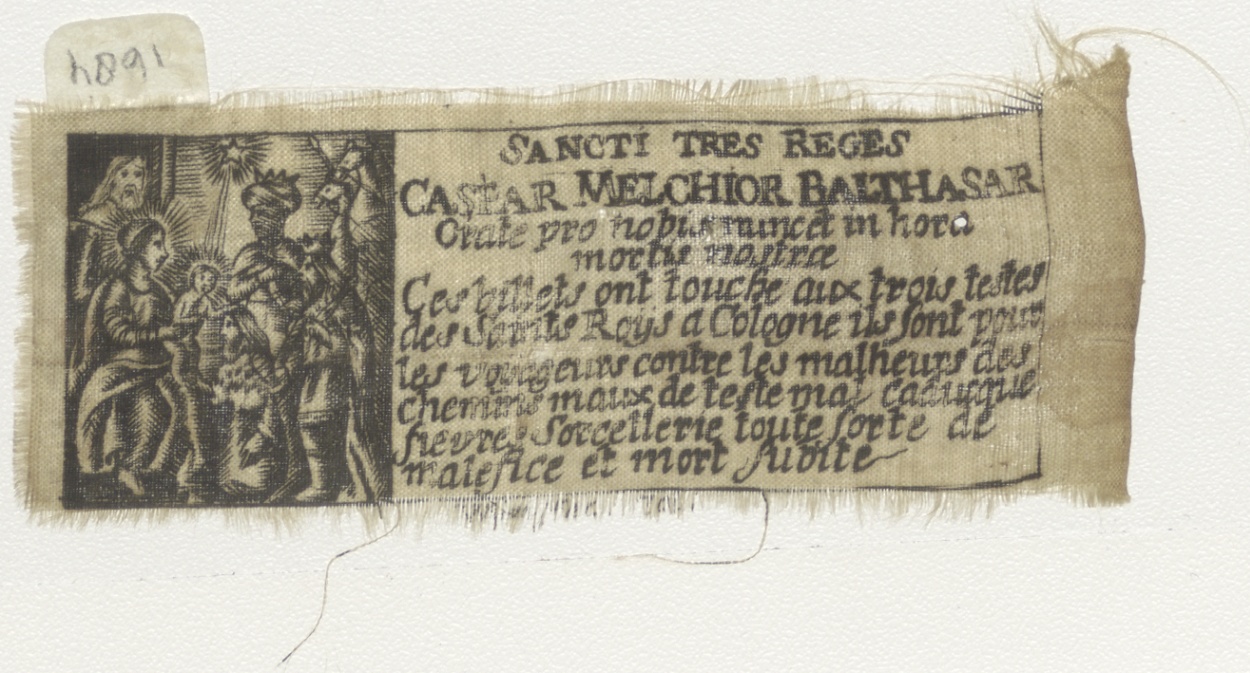 1684
SANCTI TRES REGES
CASPAR MELCHIOR BALTHASAR
Orate pro nobis nuncet in hora
mortis nostræ
Ces billets ont touche aux trois testes
des Saints Roys a Cologne ils sont pour
les voyageurs contre les malheurs des
chemins maux de teste mal caducque
fievres Sorcellerie toute sorte de
malefice et mort subite